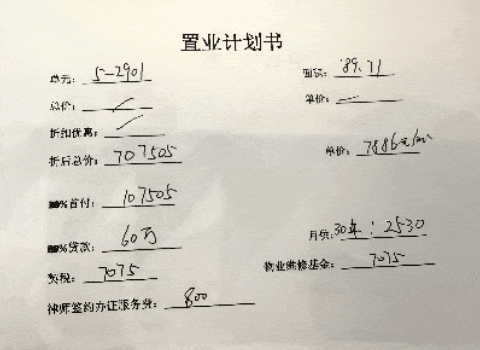 置业计划书
单元: 5-2901 面积: 89.71
总价: 单价:
折扣优惠:
折后总价: 707505 单价: 7886元/m²
%首付: 107505
%贷款: 60万 月供: 30年: 2530
契税: 7075 物业维修基金: 7075
律师签约办证服务费: 800